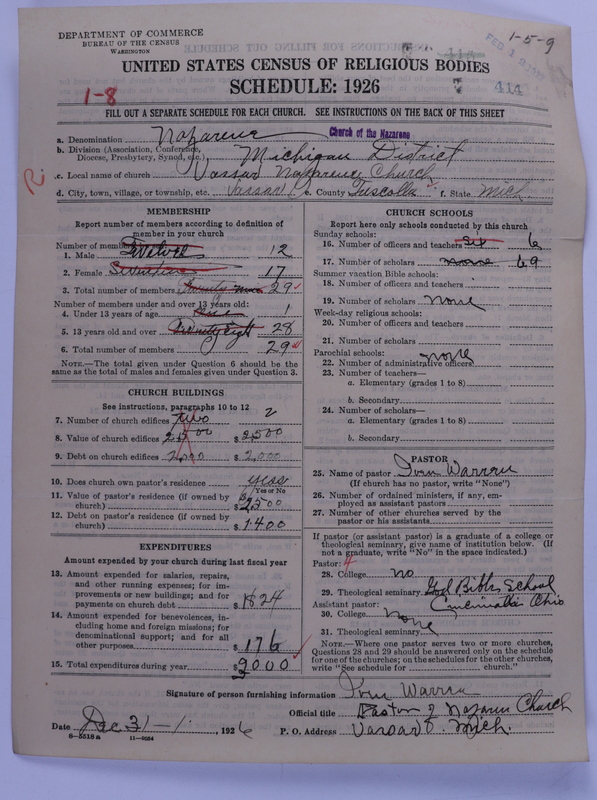 DEPARTMENT OF COMMERCE
BUREAU OF THE CENSUS
WASHINGTON
1-5-9
414
UNITED STATES CENSUS OF RELIGIOUS BODIES
SCHEDULE: 1926
414
1-8
FILL OUT A SEPARATE SCHEDULE FOR EACH CHURCH. SEE INSTRUCTIONS ON THE BACK OF THIS SHEET
a. Denomination Nazarene Church of the Nazarene
b. Division (Association, Conference, Diocese, Presbytery, Synod, etc.) Michigan District
c. Local name of church Vassar Nazarene Church
d. City, town, village, or township, etc. Vassar e. County Tuscolla f. State Mich.
MEMBERSHIP
Report number of members according to definition of
member in your church
Number of members:
1. Male Twelve 12
2. Female Seventeen 17
3. Total number of members Twenty nine 29
Number of members under and over 13 years old:
4. Under 13 years of age 1
5. 13 years old and over Twenty Eight 28
6. Total number of members 29
NOTE.—The total given under Question 6 should be
the same as the total of males and females given under Question 3.
CHURCH BUILDINGS
See instructions, paragraphs 10 to 12
7. Number of church edifices two 2
8. Value of church edifices $ 2500
9. Debt on church edifices 2,000 $ 2,000
10. Does church own pastor's residence yess
Yes or No
11. Value of pastor's residence (if owned by
church) $ 2500
12. Debt on pastor's residence (if owned by
church) $ 1400
EXPENDITURES
Amount expended by your church during last fiscal year
13. Amount expended for salaries, repairs,
and other running expenses; for im-
provements or new buildings; and for
payments on church debt $ 1824
14. Amount expended for benevolences, in-
cluding home and foreign missions; for
denominational support; and for all
other purposes $ 176
15. Total expenditures during year $ 2000
CHURCH SCHOOLS
Report here only schools conducted by this church
Sunday schools:
16. Number of officers and teachers six 6
17. Number of scholars 69
Summer vacation Bible schools:
18. Number of officers and teachers
19. Number of scholars none
Week-day religious schools:
20. Number of officers and teachers
21. Number of scholars
Parochial schools: none
22. Number of administrative officers
23. Number of teachers—
a. Elementary (grades 1 to 8)
b. Secondary
24. Number of scholars—
a. Elementary (grades 1 to 8)
b. Secondary
PASTOR
25. Name of pastor Ivan Warren
(If church has no pastor, write "None")
26. Number of ordained ministers, if any, em-
ployed as assistant pastors
27. Number of other churches served by the
pastor or his assistants
If pastor (or assistant pastor) is a graduate of a college or
theological seminary, give name of institution below. (If
not a graduate, write "No" in the space indicated.)
Pastor: 4
28. College no
29. Theological seminary God Bible School
Assistant pastor: Cincinatti Ohio
30. College none
31. Theological seminary
NOTE.—Where one pastor serves two or more churches,
Questions 28 and 29 should be answered only on the schedule
for one of the churches; on the schedules for the other churches,
write "See schedule for church."
Signature of person furnishing information Ivan Warren
Official title Pastor of Nazaren Church
Date Dec 31-1, 1926 P. O. Address Vassar Mich.
8-5518a 11-9034